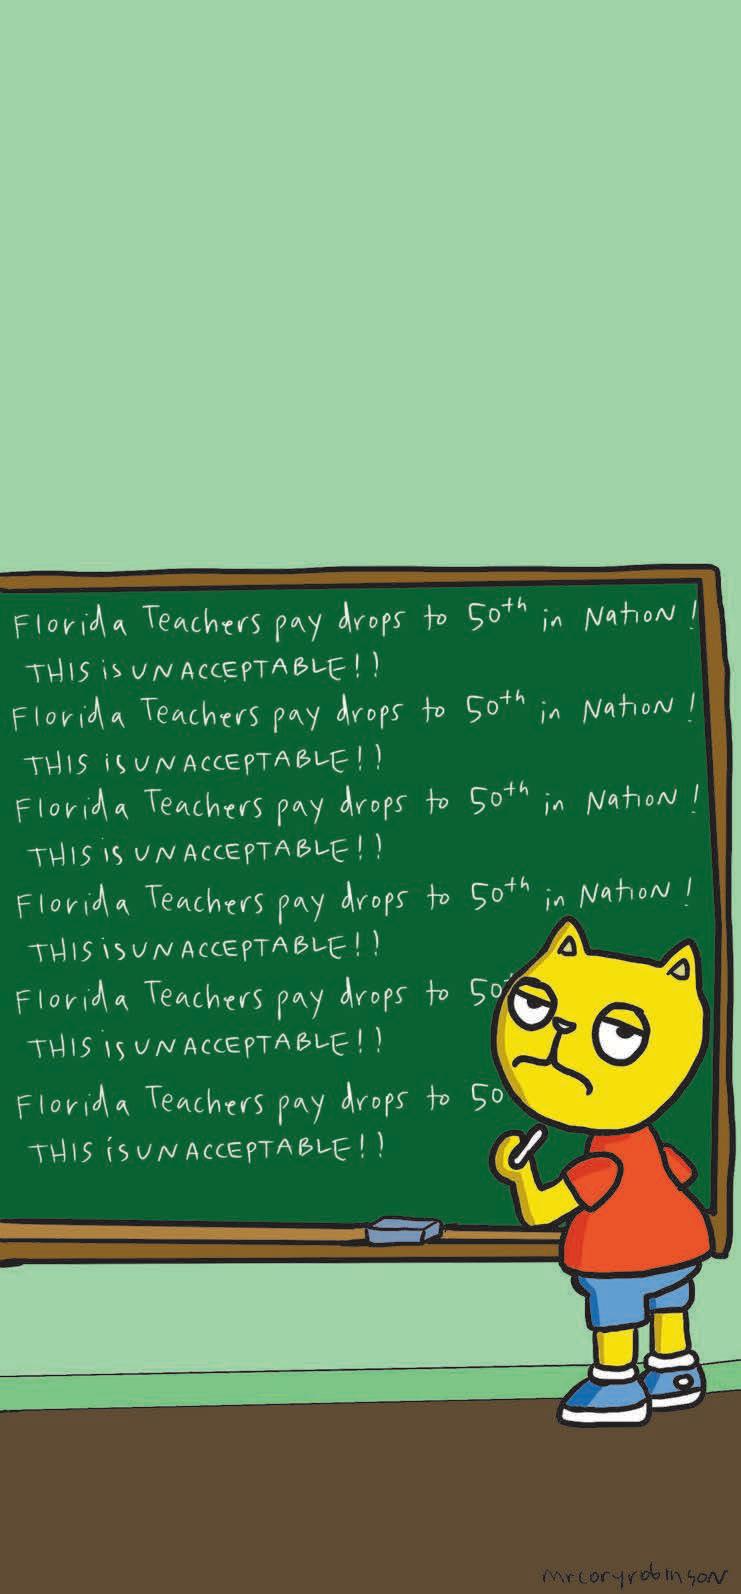 Florida Teachers pay drops to 50th in Nation!
THIS is UNACCEPTABLE!!
Florida Teachers pay drops to 50th in Nation!
THIS is UNACCEPTABLE!!
Florida Teachers pay drops to 50th in Nation!
THIS is UNACCEPTABLE!!
Florida Teachers pay drops to 50th in Nation!
THIS is UNACCEPTABLE!!
Florida Teachers pay drops to 50
THIS is UNACCEPTABLE!!
Florida Teachers pay drops to 50
THIS is UNACCEPTABLE!!
mrcoryrobinson